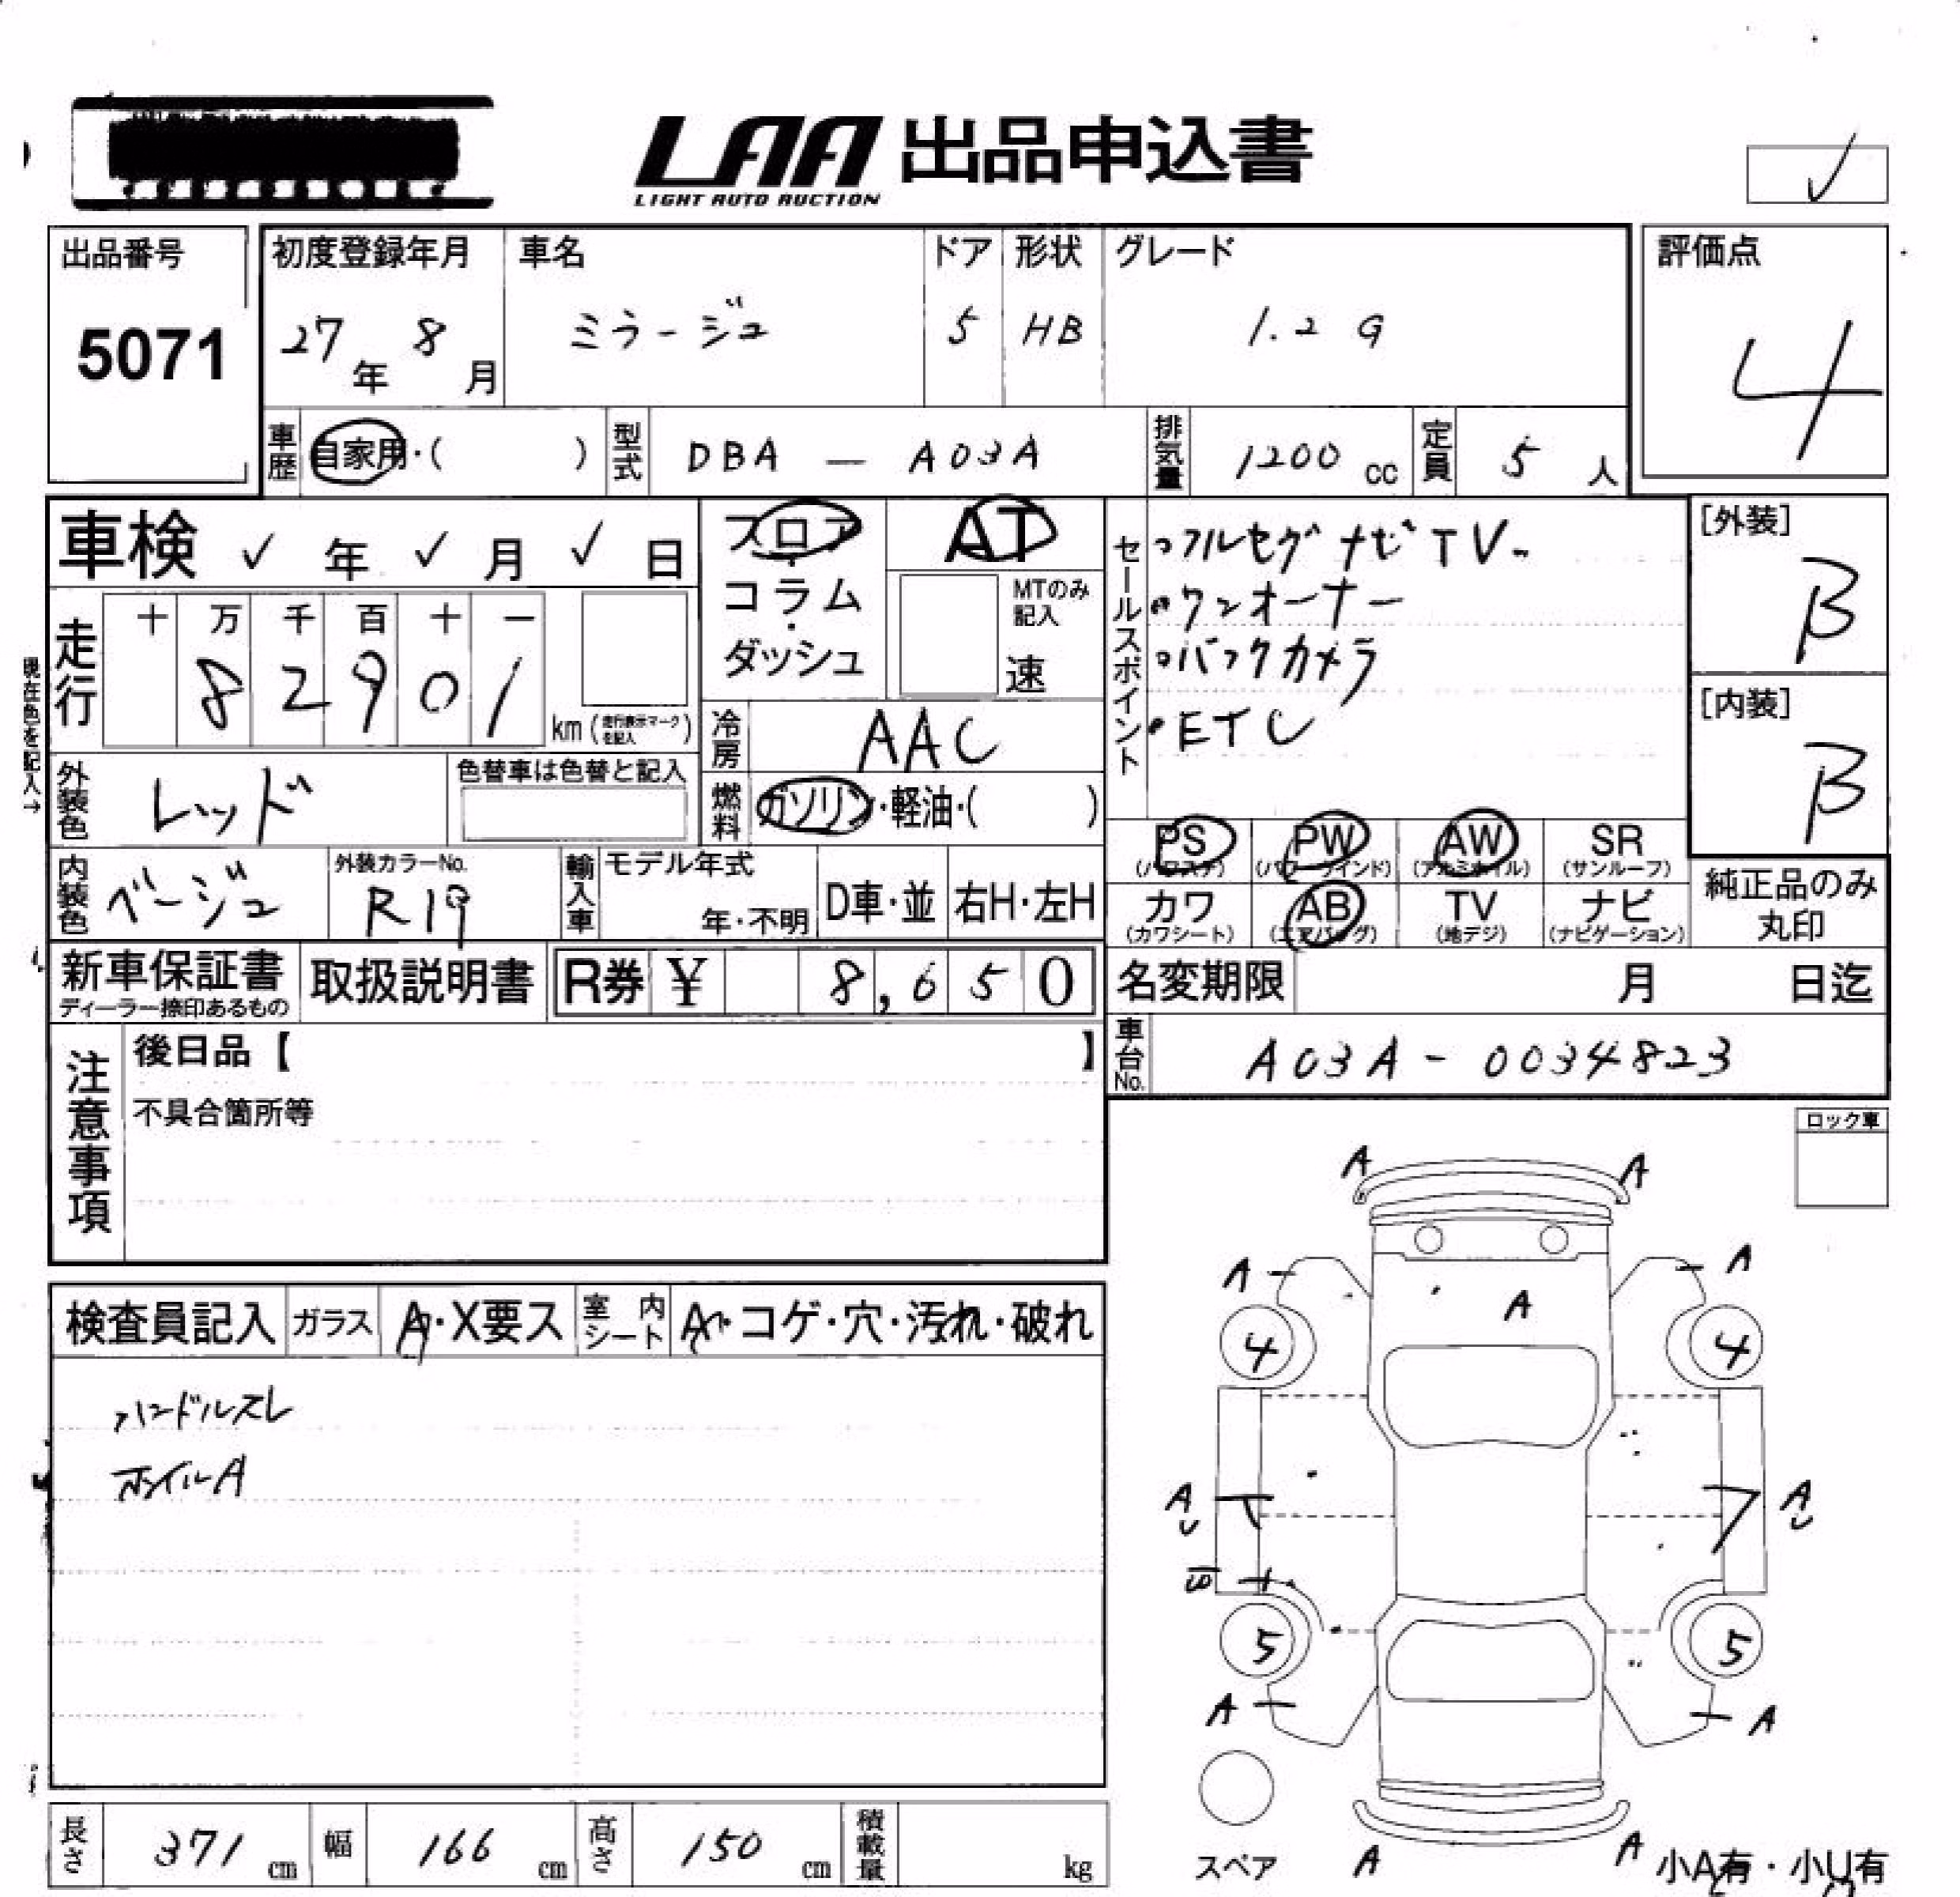 LAA 出品申込書
LIGHT AUTO AUCTION
✓
出品番号
5071
初度登録年月
27年 8月
車名
ミラージュ
ドア
5
形状
HB
グレード
1.2 G
評価点
4
車歴 自家用・( )
型式 DBA — A03A
排気量 1200 cc
定員 5 人
車検 ✓ 年 ✓ 月 ✓ 日
フロア・コラム・ダッシュ
AT
MTのみ記入
速
セールスポイント
・フルセグナビTV
・ワンオーナー
・バックカメラ
・ETC
[外装]
B
[内装]
B
現在色を記入→
走行
十 万 千 百 十 一
8 2 9 0 1
km (走行表示マークを記入)
冷房 AAC
燃料 ガソリン・軽油・( )
外装色 レッド
色替車は色替と記入
内装色 ベージュ
外装カラーNo.
R19
輸入車
モデル年式
年・不明
D車・並
右H・左H
PS (パワステ)
PW (パワーウインド)
AW (アルミホイル)
SR (サンルーフ)
カワ (カワシート)
AB (エアバッグ)
TV (地デジ)
ナビ (ナビゲーション)
純正品のみ丸印
新車保証書
ディーラー捺印あるもの
取扱説明書
R券 ¥ 8,650
名変期限 月 日迄
車台No. A03A - 0034823
注意事項
後日品【 】
不具合箇所等
ロック車
検査員記入
ガラス A・X要ス
室内シート A・コゲ・穴・汚れ・破れ
ハンドルスレ
ホイルA
A A
A A
A
4 4
A A
5 5
A A
スペア
A A
小A有・小U有
長さ 371 cm
幅 166 cm
高さ 150 cm
積載量 kg